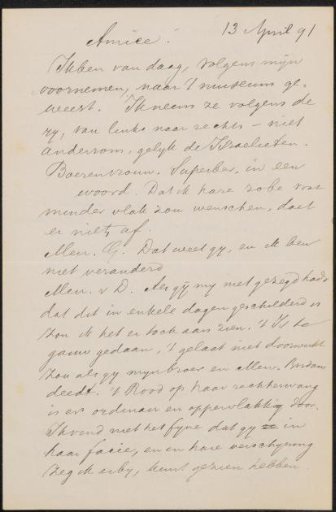 13 April 91
Amice!
Ik ben van daag, volgens mijn
voornemen, naar 't museum ge-
weest. Ik neem ze volgens de
ry, van links naar rechts – niet
andersom, gelyk de Israelieten.
Boerenvrouw. Superbe, in een
woord. Dat ik hare robe wat
minder vlak zou wenschen, doet
er niets af.
Mevr. G. Dat weet gy, en ik ben
niet veranderd
Mevr. v D. Als gy my niet gezegd hadt
dat dit in enkele dagen geschilderd is
zou ik het er toch aan zien. 't Is te
gauw gedaan, 't gelaat niet doorwerkt
zoals gy mijn broer en Mevr.
deedt. 't Rood op haar rechterwang
is er ordinair en oppervlakkig door.
Ik vond niet het fyne dat gy in
haar facie, en en hare verschyning
zeg ik erby, kunt gezien hebben.